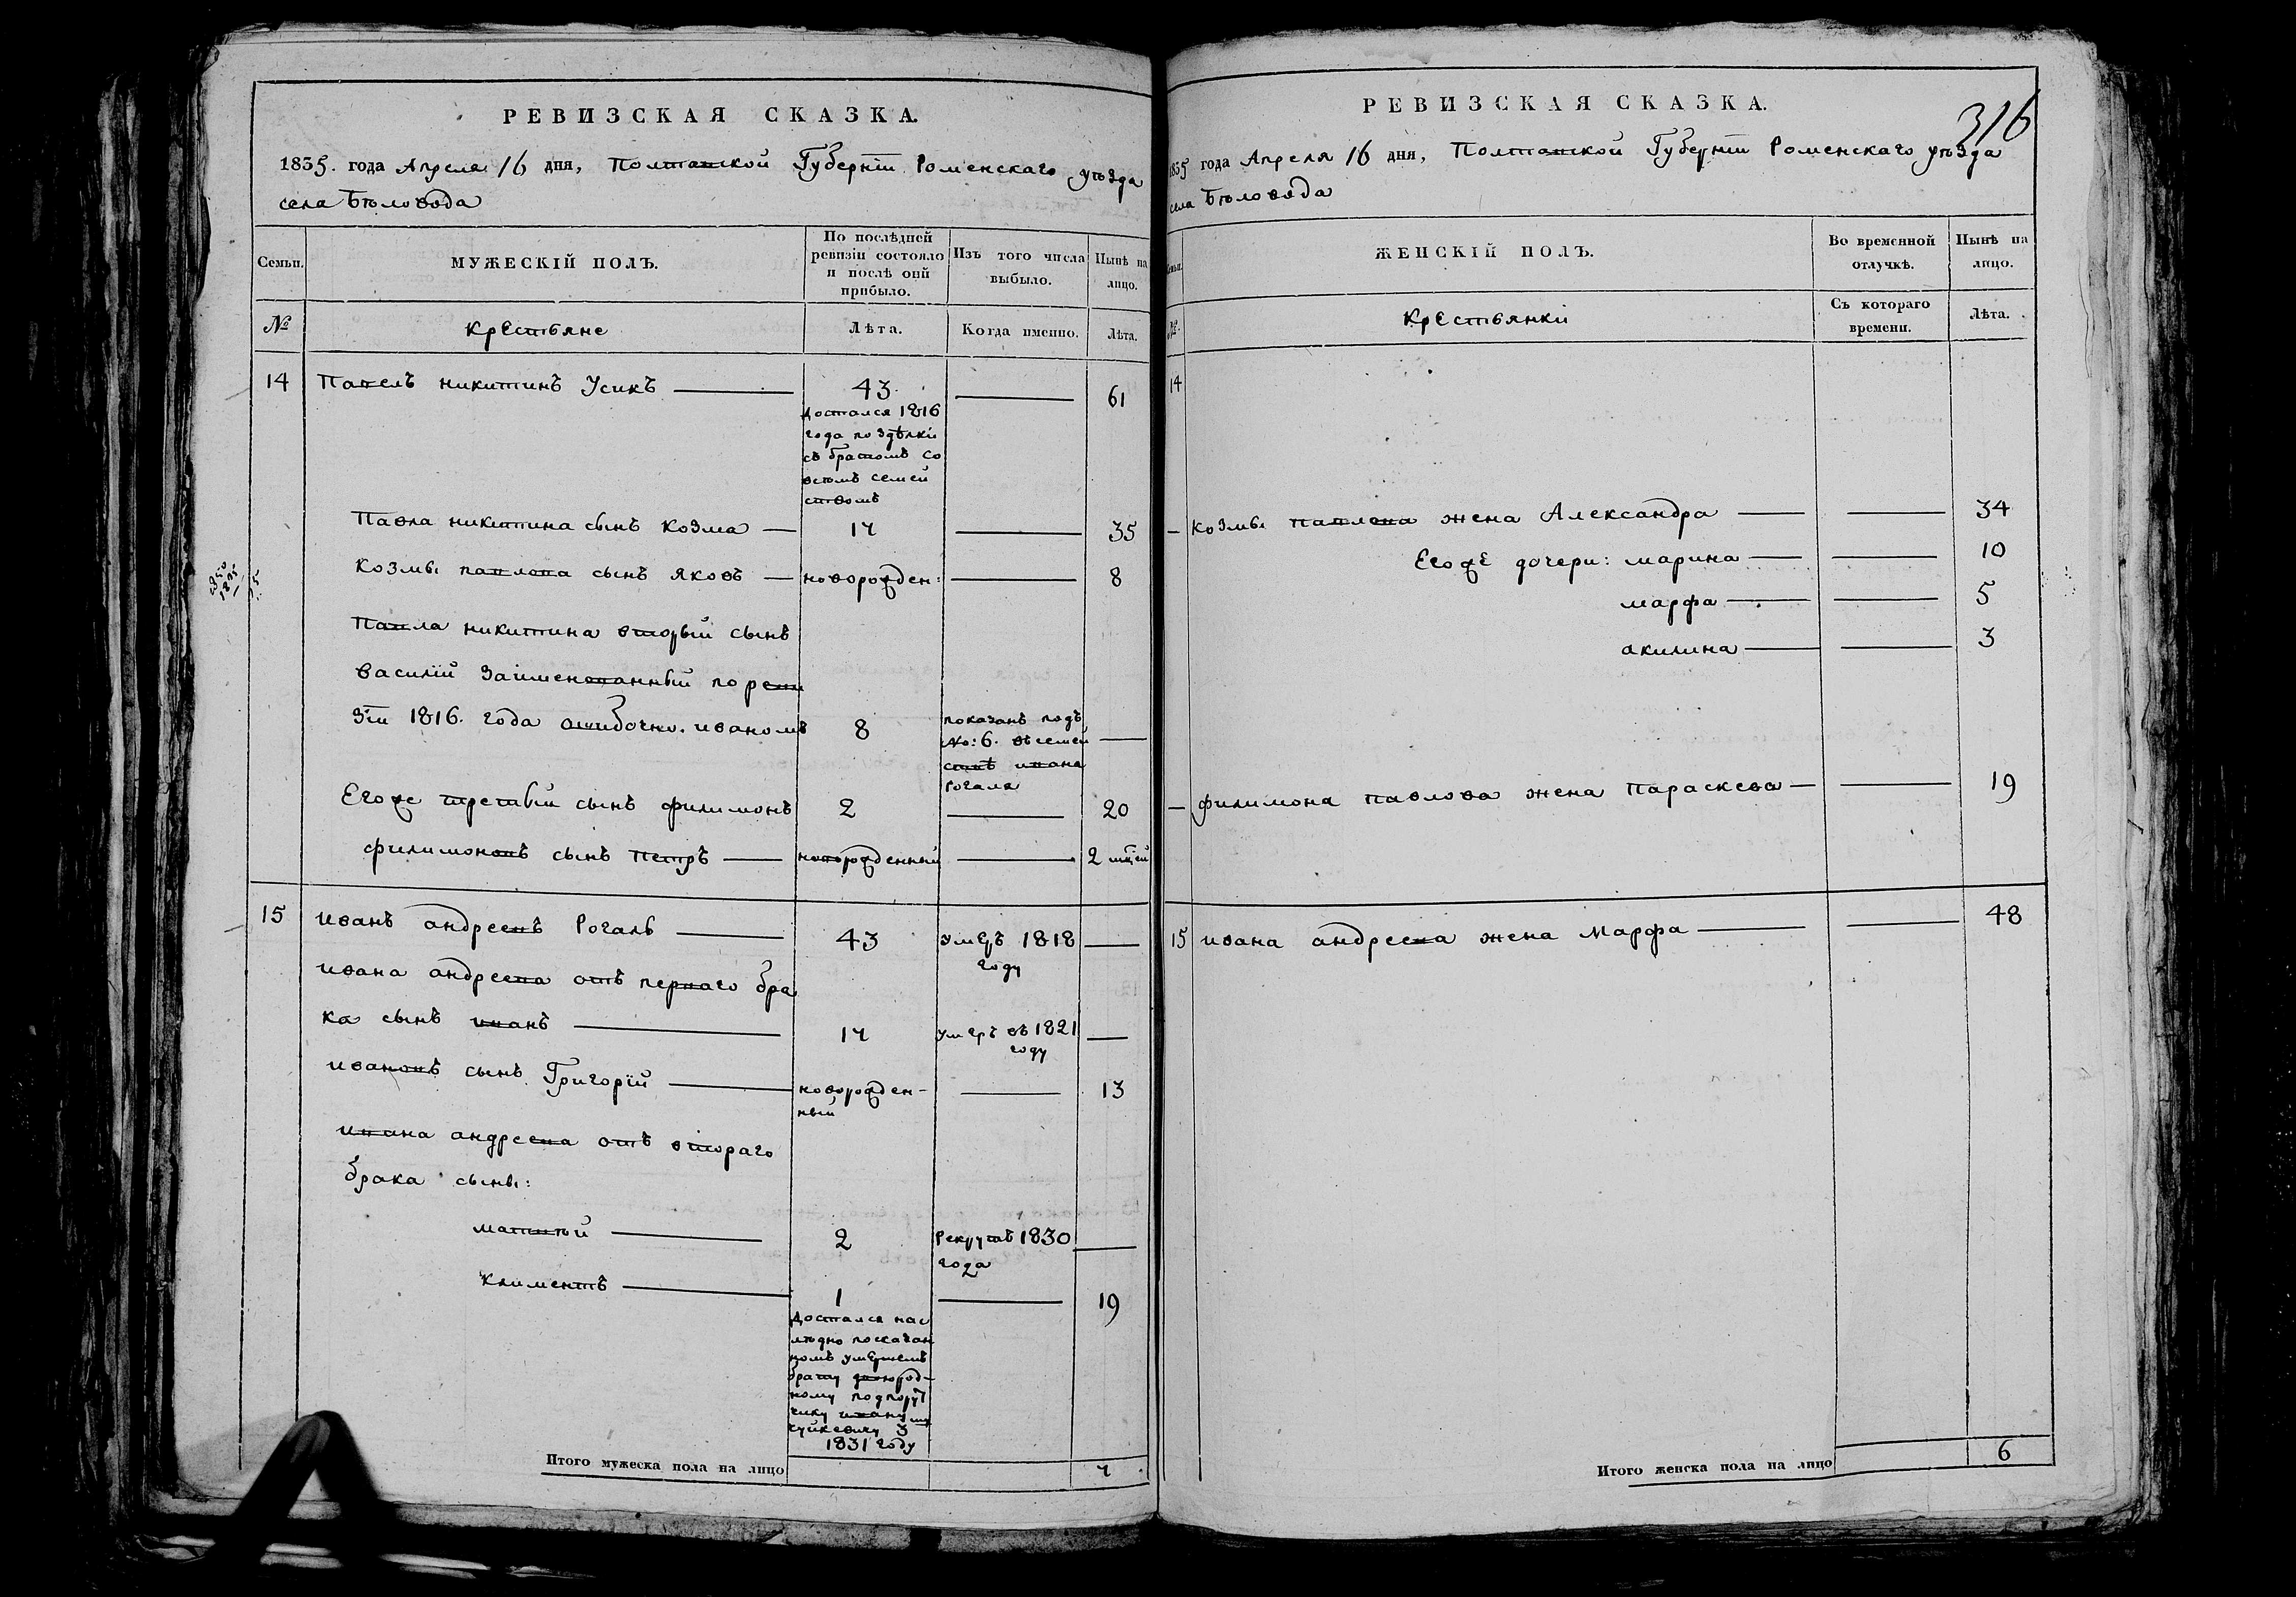 РЕВИЗСКАЯ СКАЗКА.
1835. года Апреля 16 дня, Полтавской Губернїи Роменскаго уѣзда
села Бѣловода
Семьи.
МУЖЕСКІЙ ПОЛЪ.
По послѣдней
ревизіи состояло
и послѣ оній
прибыло.
Изъ того числа
выбыло.
Нынѣ на
лицо.
№
крестьяне
Лѣта.
Когда именно.
Лѣта.
14 Павелъ никитинъ Усикъ 43 61
достался 1816
года по здѣлки
съ братомъ со
всемъ семей
ствомъ
Павла никитина сынъ козма 17 35
козмы павлова сынъ яковъ новорожден: 8
Павла никитина вторый сынъ
василїй заименованный по реви
зїи 1816. года ошибочно. иваномъ 8
показанъ подъ
№: 6. въ семей
ствѣ ивана
Рогаля
Егоже третьый сынъ филимонъ 2 20
филимоновъ сынъ петръ новорожденный 2 мцей
15 иванъ андреевъ Рогаль 43 умеръ 1818
году
ивана андреева отъ перваго бра
ка сынъ иванъ 17 умеръ въ 1821
году
ивановъ сынъ Григорїй новорожден- 13
ный
ивана андреева отъ втораго
брака сыны:
матвѣй 2 Рекрутъ 1830
года
климентъ 1 19
достался нас
лѣдно
умершемъ
брату двоюрод-
ному подпору
чику ивану
чуйкевичу
1831 году
Итого мужеска пола на лицо 7
РЕВИЗСКАЯ СКАЗКА.
316
1835 года Апреля 16 дня, Полтавской Губернїи Роменскаго уѣзда
села Бѣловода
ЖЕНСКІЙ ПОЛЪ.
Во временной
отлучкѣ.
Нынѣ на
лицо.
№.
крестьянки
Съ котораго
времени.
Лѣта.
14
козмы павлова жена Александра 34
Егоже дочери: марина 10
марфа 5
акилина 3
филимона павлова жена параскева 19
15 ивана андреева жена марфа 48
Итого женска пола на лицо 6